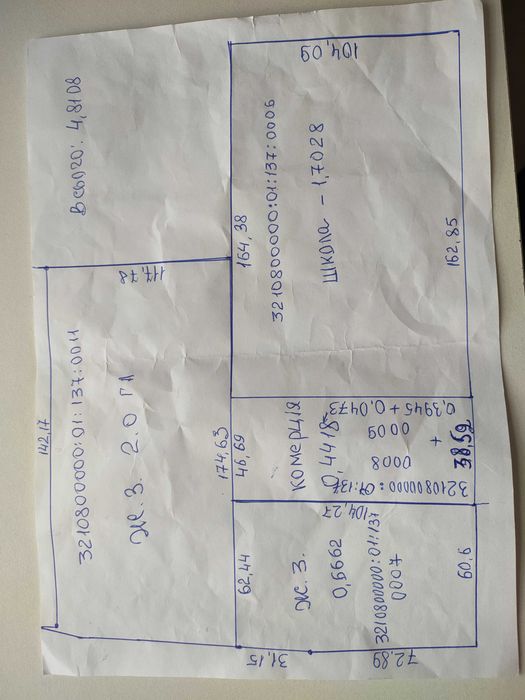 142,17
3210800000:01:137:0011
Ж. З. 2.0 га
117,78
Всього: 4,8108
174,63
62,44
46,69
164,38
31,15
Ж. З.
0,6662
3210800000:01:137
0007
72,89
60,6
104,27
комерція
0,4418
0008 0009
+
3210800000:01:137
0,3945 + 0,0473
38,59
3210800000:01:137:0006
Школа - 1,7028
104,09
162,85